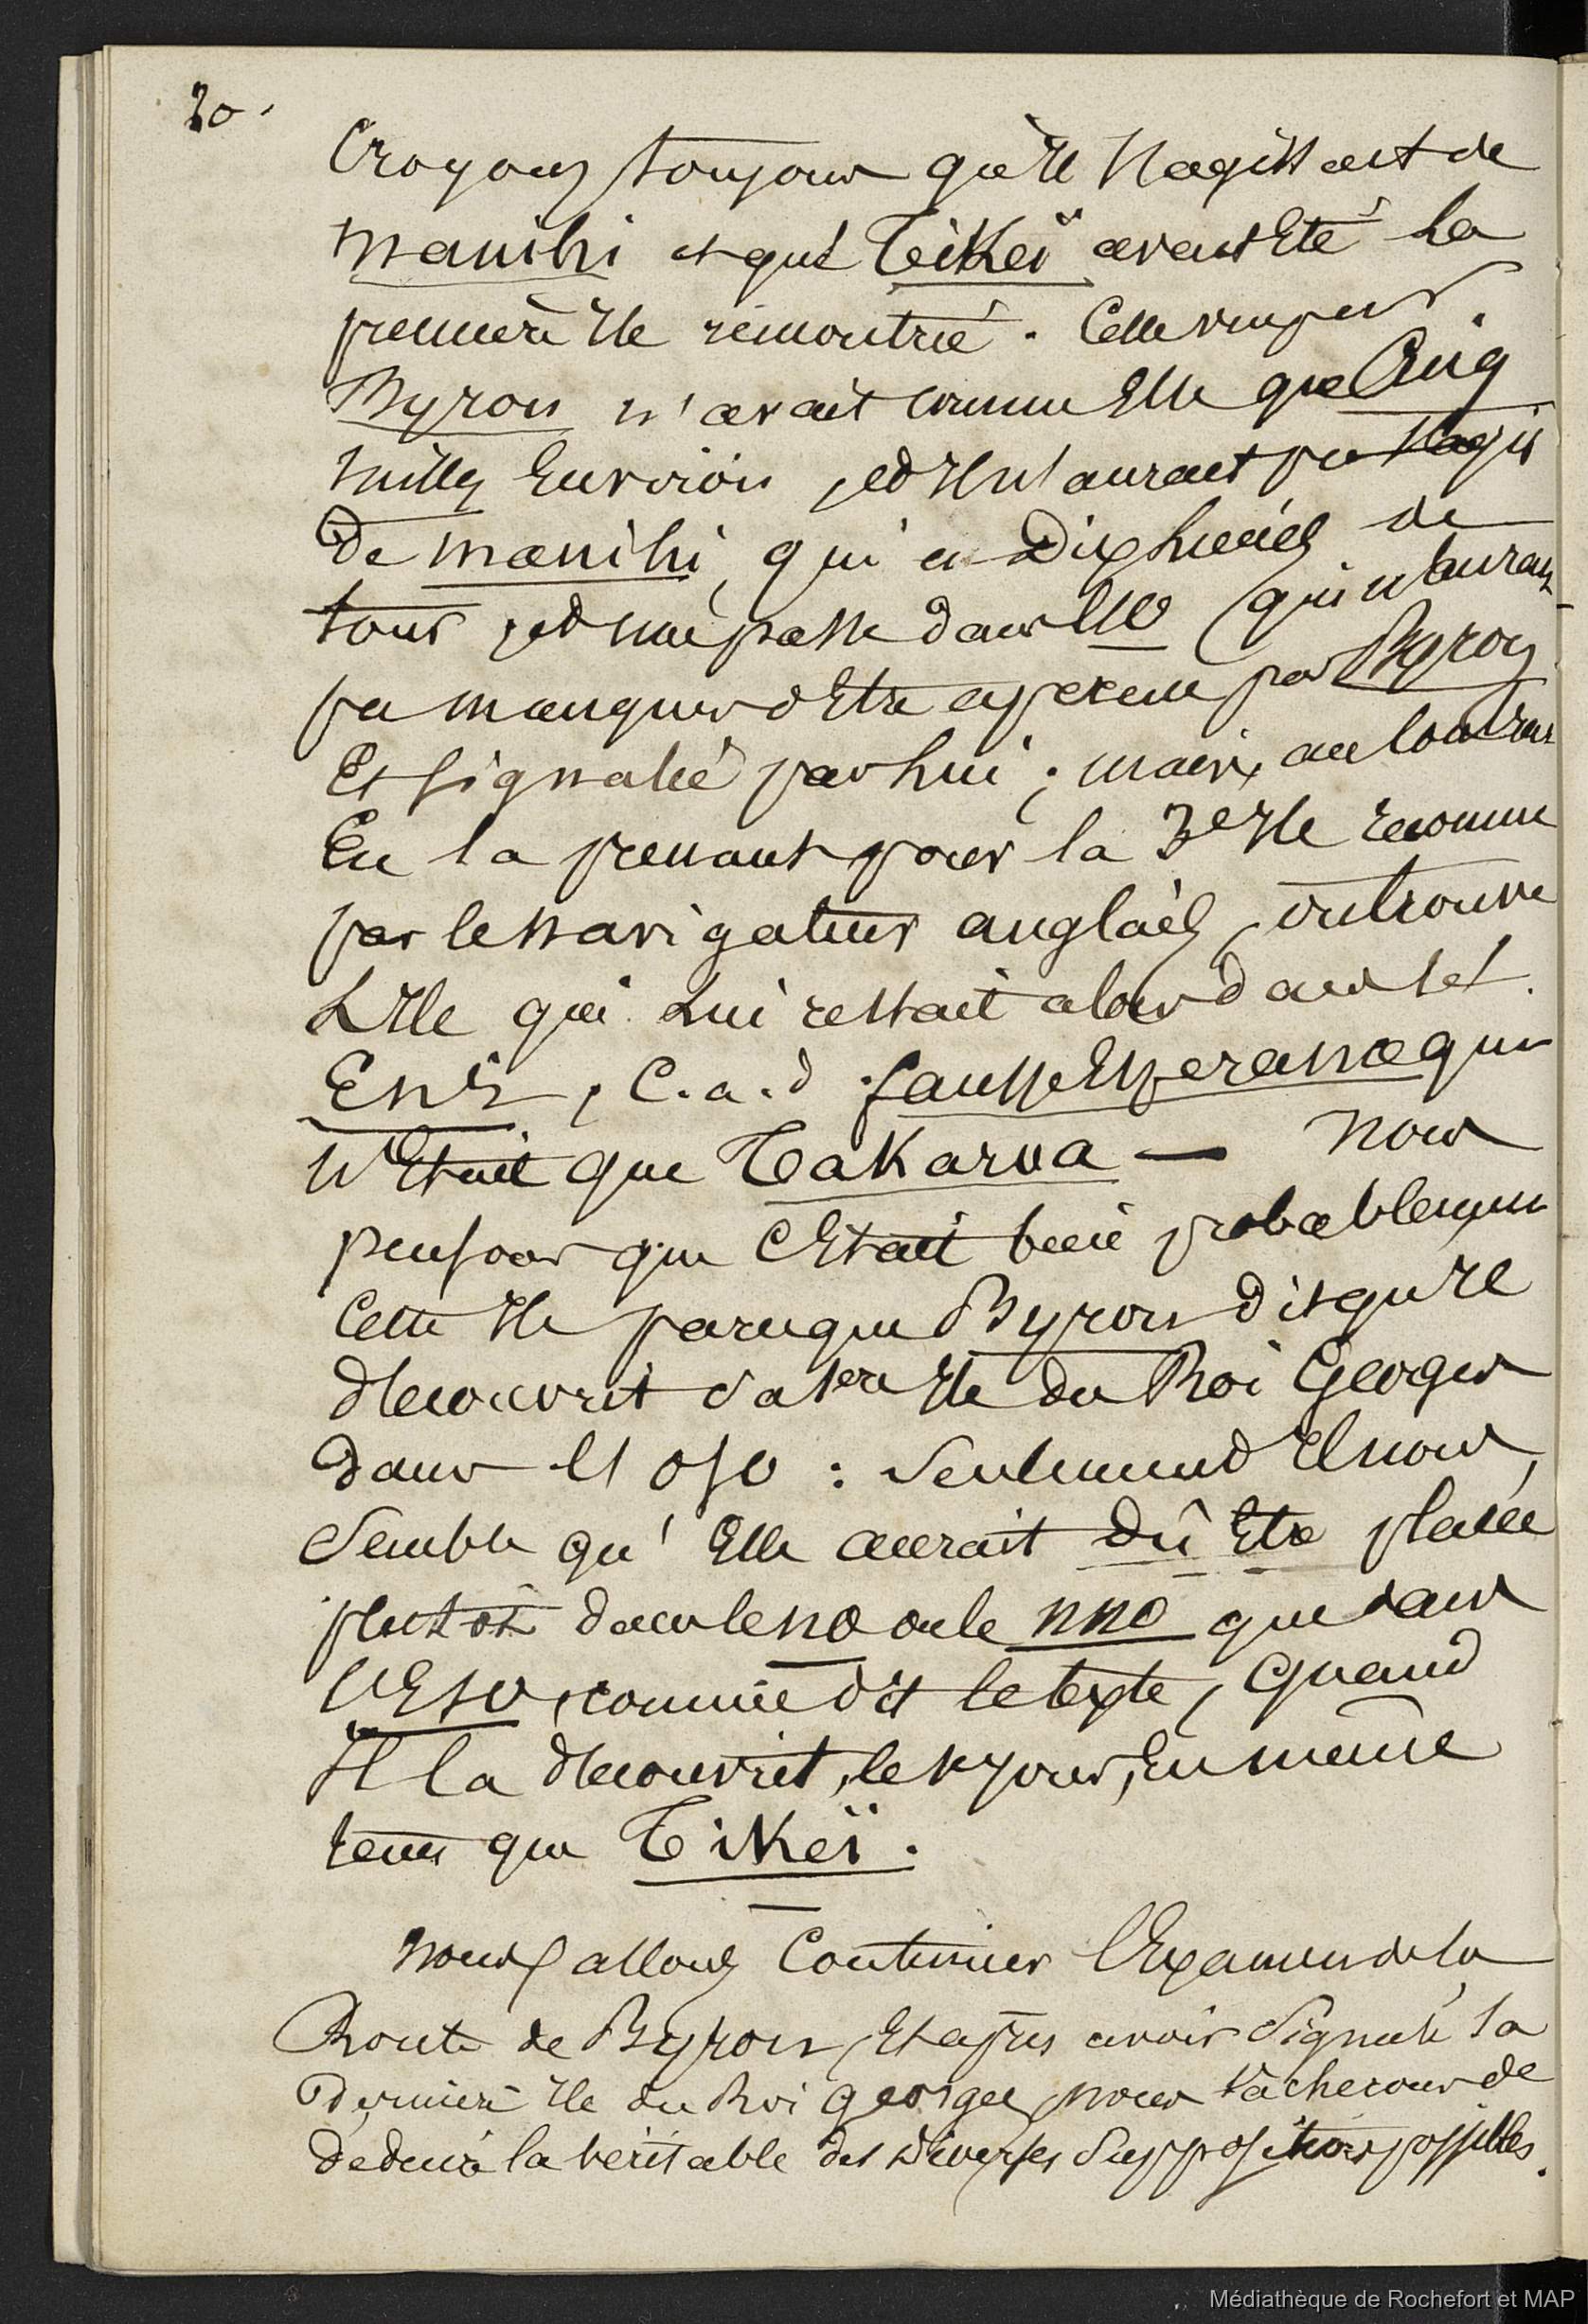 20.
Croyons toujours qu'il s'agissait de
manihi et que Tikeï avait été la
première île rencontrée. Celle vue par
Byron n'avait comme elle que cinq
milles environ, et il n'aurait pu s'agir
de manihi, qui a dix huit de
tour, et une passe dans l'so (qui n'aurait
pu manquer d'être aperçue par Byron
Et signalée par lui; mais, au contraire
En la prenant pour la 3e île reconnue
par le navigateur anglais, on trouve
L'île qui lui restait alors dans l'
, C.a.d. fausse Esperance qui
n'était que Takaroa — Nous
pensons que c'était bien probablement
Cette île parceque Byron dit qu'il
découvrit sa 1ère île du Roi Georges
dans l' oso : Seulement il nous
Semble qu'elle aurait dû être placée
plutôt dans le no ou le nno que dans
l'Eso, comme dit le texte, quand
Il la découvrit, le jour, en même
tems que Tikeï.
Nous allons Continuer l'Examen de la
Route de Byron, et après avoir signalé la
dernière île du Roi georges, nous tâcherons de
déduire la véritable des diverses suppositions possibles.
Médiathèque de Rochefort et MAP